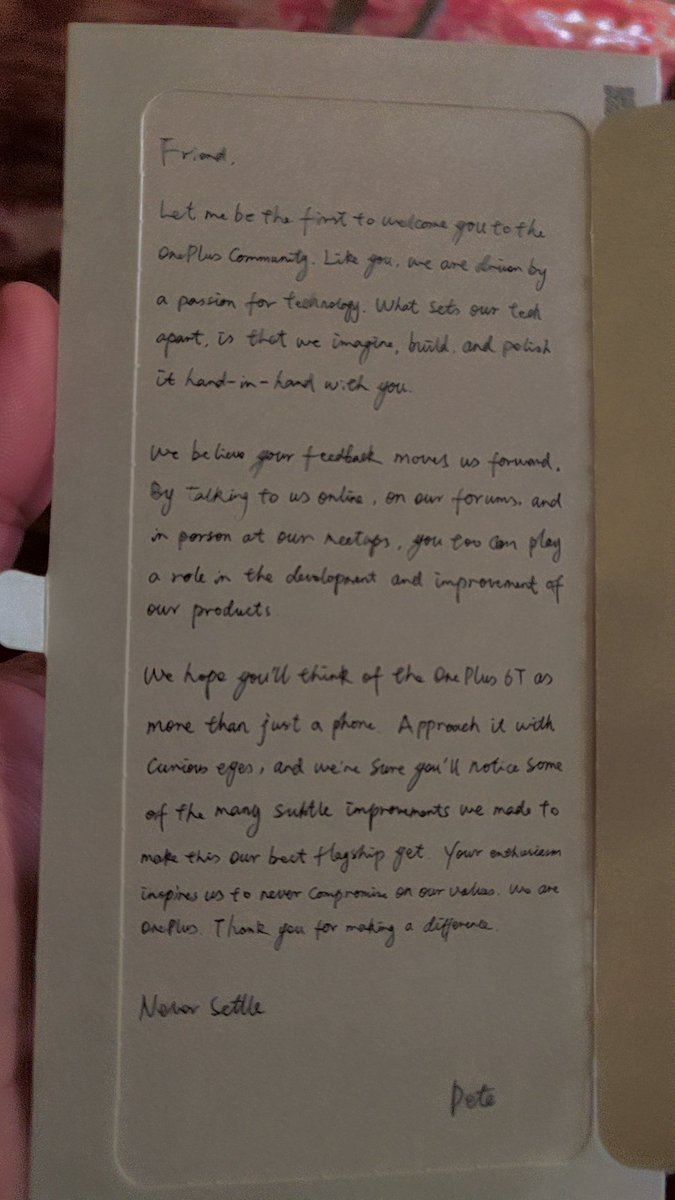 Friend,
Let me be the first to welcome you to the
OnePlus Community. Like you, we are driven by
a passion for technology. What sets our tech
apart, is that we imagine, build, and polish
it hand-in-hand with you.
We believe your feedback moves us forward.
By talking to us online, on our forums, and
in person at our meetups, you too can play
a role in the development and improvement of
our products.
We hope you'll think of the OnePlus 6T as
more than just a phone. Approach it with
curious eyes, and we're sure you'll notice some
of the many subtle improvements we made to
make this our best flagship yet. Your enthusiasm
inspires us to never compromise on our values. We are
OnePlus. Thank you for making a difference.
Never Settle
Pete